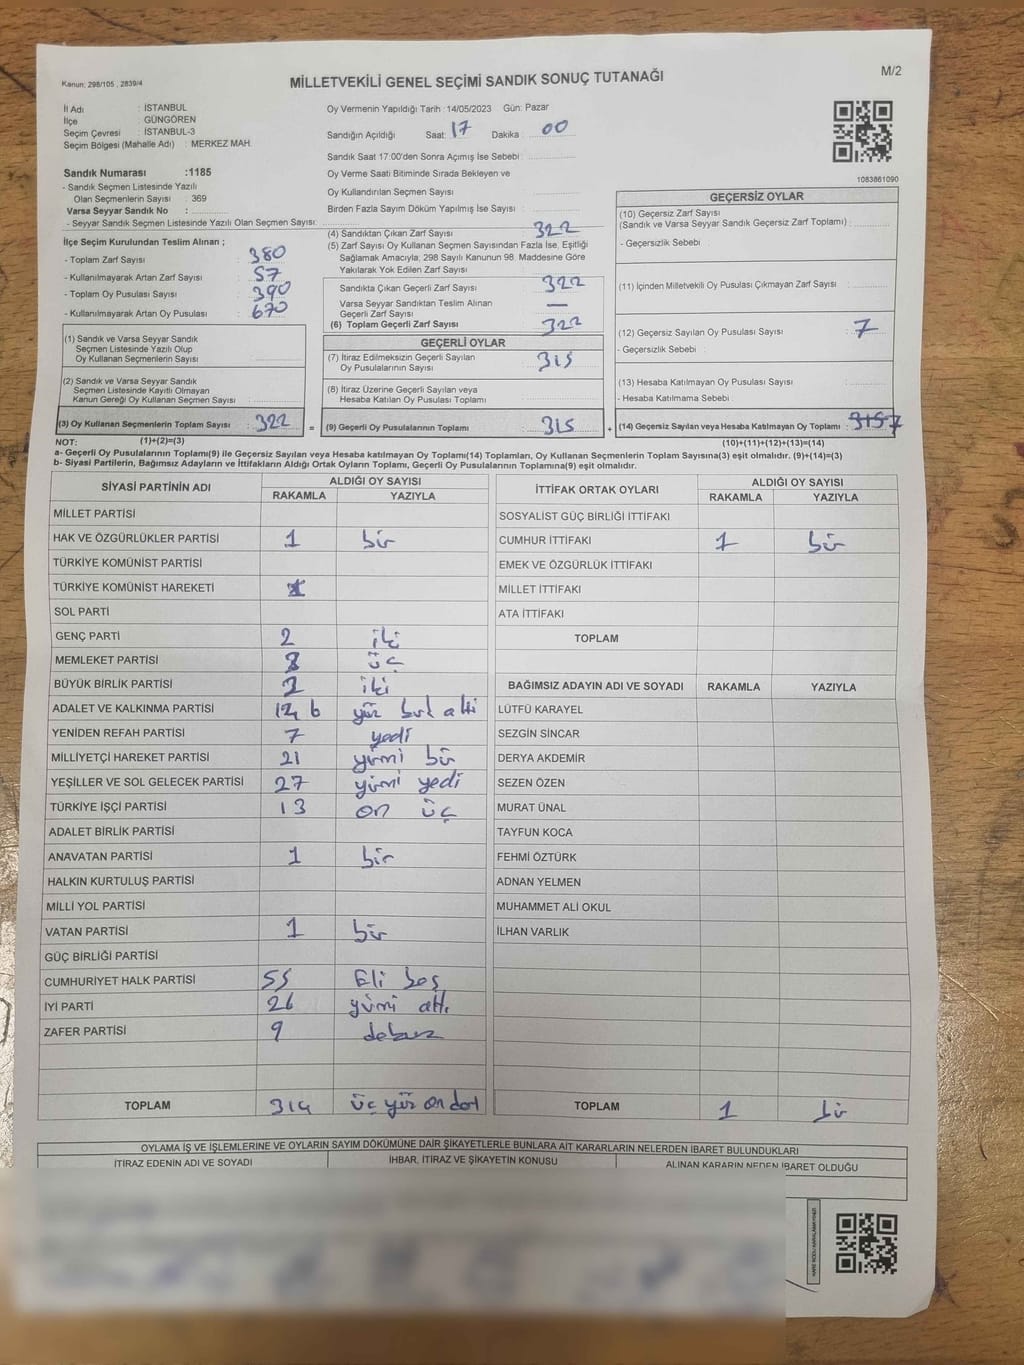 Kanun: 298/105 , 2839/4
MİLLETVEKİLİ GENEL SEÇİMİ SANDIK SONUÇ TUTANAĞI
M/2
İl Adı : İSTANBUL
İlçe : GÜNGÖREN
Seçim Çevresi : İSTANBUL-3
Seçim Bölgesi (Mahalle Adı) : MERKEZ MAH.
Oy Vermenin Yapıldığı Tarih : 14/05/2023 Gün: Pazar
Sandığın Açıldığı Saat: 17 Dakika : 00
Sandık Saat 17:00'den Sonra Açımış İse Sebebi :
Oy Verme Saati Bitiminde Sırada Bekleyen ve
Oy Kullandırılan Seçmen Sayısı :
Birden Fazla Sayım Döküm Yapılmış İse Sayısı :
1083861090
Sandık Numarası :1185
- Sandık Seçmen Listesinde Yazılı
Olan Seçmenlerin Sayısı : 369
Varsa Seyyar Sandık No :
- Seyyar Sandık Seçmen Listesinde Yazılı Olan Seçmen Sayısı:
İlçe Seçim Kurulundan Teslim Alınan ;
- Toplam Zarf Sayısı : 380
- Kullanılmayarak Artan Zarf Sayısı : 57
- Toplam Oy Pusulası Sayısı : 390
- Kullanılmayarak Artan Oy Pusulası : 670
(1) Sandık ve Varsa Seyyar Sandık
Seçmen Listesinde Yazılı Olup
Oy Kullanan Seçmenlerin Sayısı :
(2) Sandık ve Varsa Seyyar Sandık
Seçmen Listesinde Kayıtlı Olmayan
Kanun Gereği Oy Kullanan Seçmen Sayısı :
(3) Oy Kullanan Seçmenlerin Toplam Sayısı : 322 =
(4) Sandıktan Çıkan Zarf Sayısı : 322
(5) Zarf Sayısı Oy Kullanan Seçmen Sayısından Fazla İse, Eşitliği
Sağlamak Amacıyla, 298 Sayılı Kanunun 98. Maddesine Göre
Yakılarak Yok Edilen Zarf Sayısı :
Sandıkta Çıkan Geçerli Zarf Sayısı : 322
Varsa Seyyar Sandıktan Teslim Alınan
Geçerli Zarf Sayısı : —
(6) Toplam Geçerli Zarf Sayısı : 322
GEÇERLİ OYLAR
(7) İtiraz Edilmeksizin Geçerli Sayılan
Oy Pusulalarının Sayısı : 315
(8) İtiraz Üzerine Geçerli Sayılan veya
Hesaba Katılan Oy Pusulası Toplamı :
(9) Geçerli Oy Pusulalarının Toplamı : 315 +
GEÇERSİZ OYLAR
(10) Geçersiz Zarf Sayısı
(Sandık ve Varsa Seyyar Sandık Geçersiz Zarf Toplamı) :
- Geçersizlik Sebebi :
(11) İçinden Milletvekili Oy Pusulası Çıkmayan Zarf Sayısı :
(12) Geçersiz Sayılan Oy Pusulası Sayısı : 7
- Geçersizlik Sebebi :
(13) Hesaba Katılmayan Oy Pusulası Sayısı :
- Hesaba Katılmama Sebebi :
(14) Geçersiz Sayılan veya Hesaba Katılmayan Oy Toplamı : 315 7
NOT: (1)+(2)=(3)
(10)+(11)+(12)+(13)=(14)
a- Geçerli Oy Pusulalarının Toplamı(9) ile Geçersiz Sayılan veya Hesaba katılmayan Oy Toplamı(14) Toplamları, Oy Kullanan Seçmenlerin Toplam Sayısına(3) eşit olmalıdır. (9)+(14)=(3)
b- Siyasi Partilerin, Bağımsız Adayların ve İttifakların Aldığı Ortak Oyların Toplamı, Geçerli Oy Pusulalarının Toplamına(9) eşit olmalıdır.
SİYASİ PARTİNİN ADI
ALDIĞI OY SAYISI
RAKAMLA YAZIYLA
MİLLET PARTİSİ
HAK VE ÖZGÜRLÜKLER PARTİSİ 1 bir
TÜRKİYE KOMÜNİST PARTİSİ
TÜRKİYE KOMÜNİST HAREKETİ
SOL PARTİ
GENÇ PARTİ 2 iki
MEMLEKET PARTİSİ 3 üç
BÜYÜK BİRLİK PARTİSİ 2 iki
ADALET VE KALKINMA PARTİSİ yüz altı
YENİDEN REFAH PARTİSİ 7 yedi
MİLLİYETÇİ HAREKET PARTİSİ 21 yirmi bir
YEŞİLLER VE SOL GELECEK PARTİSİ 27 yirmi yedi
TÜRKİYE İŞÇİ PARTİSİ 13 on üç
ADALET BİRLİK PARTİSİ
ANAVATAN PARTİSİ 1 bir
HALKIN KURTULUŞ PARTİSİ
MİLLİ YOL PARTİSİ
VATAN PARTİSİ 1 bir
GÜÇ BİRLİĞİ PARTİSİ
CUMHURİYET HALK PARTİSİ 55 Eli beş
İYİ PARTİ 26 yirmi altı
ZAFER PARTİSİ 9 dokuz
TOPLAM 314 üç yüz on dört
İTTİFAK ORTAK OYLARI
ALDIĞI OY SAYISI
RAKAMLA YAZIYLA
SOSYALİST GÜÇ BİRLİĞİ İTTİFAKI
CUMHUR İTTİFAKI 1 bir
EMEK VE ÖZGÜRLÜK İTTİFAKI
MİLLET İTTİFAKI
ATA İTTİFAKI
TOPLAM
BAĞIMSIZ ADAYIN ADI VE SOYADI RAKAMLA YAZIYLA
LÜTFÜ KARAYEL
SEZGİN SİNCAR
DERYA AKDEMİR
SEZEN ÖZEN
MURAT ÜNAL
TAYFUN KOCA
FEHMİ ÖZTÜRK
ADNAN YELMEN
MUHAMMET ALİ OKUL
İLHAN VARLIK
TOPLAM 1 bir
OYLAMA İŞ VE İŞLEMLERİNE VE OYLARIN SAYIM DÖKÜMÜNE DAİR ŞİKAYETLERLE BUNLARA AİT KARARLARIN NELERDEN İBARET BULUNDUKLARI
İTİRAZ EDENİN ADI VE SOYADI İHBAR, İTİRAZ VE ŞİKAYETİN KONUSU ALINAN KARARIN NEDEN İBARET OLDUĞU